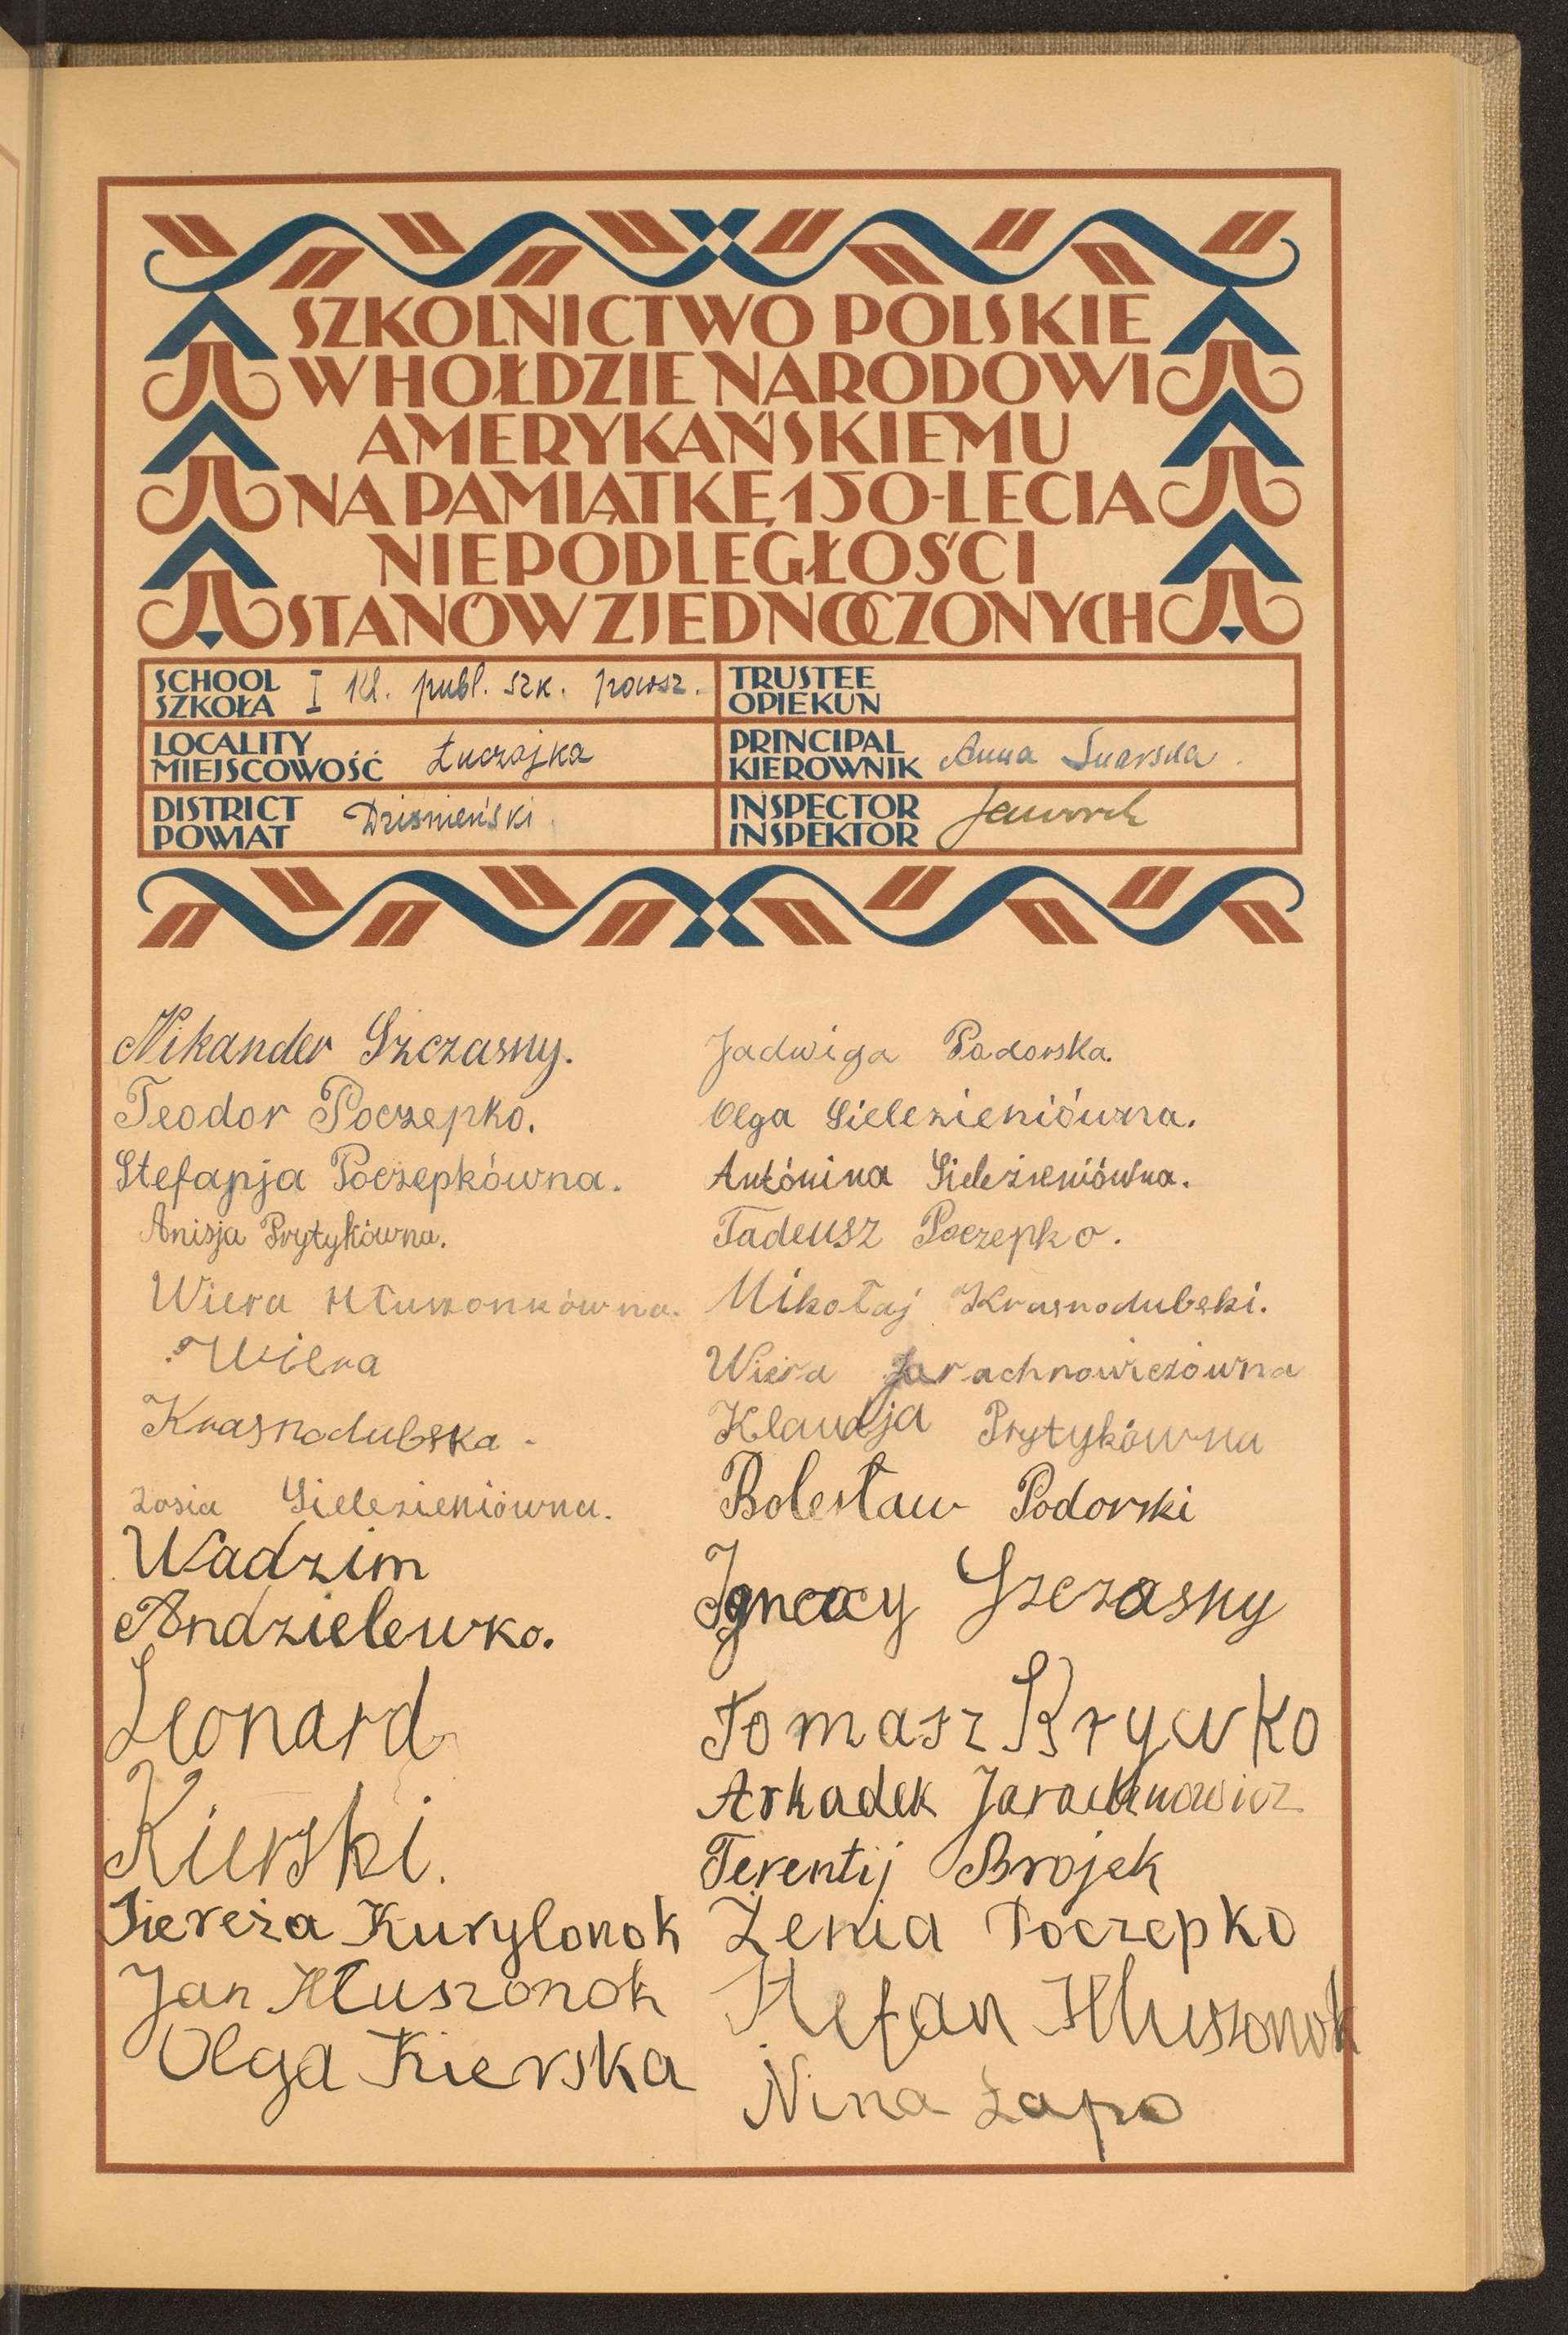 SZKOLNICTWO POLSKIE
W HOŁDZIE NARODOWI
AMERYKAŃSKIEMU
NA PAMIĄTKĘ 150-LECIA
NIEPODLEGŁOŚCI
STANÓW ZJEDNOCZONYCH
SCHOOL
SZKOŁA
I Kl. publ. szk. powsz.
TRUSTEE
OPIEKUN
LOCALITY
MIEJSCOWOŚĆ
Łuczajka
PRINCIPAL
KIEROWNIK
Anna
DISTRICT
POWIAT
Dziśnieński
INSPECTOR
INSPEKTOR
Nikander Szczasny.
Teodor Poczepko.
Stefanja Poczepkówna.
Anisja Prytykówna.
Wiera Hłuszonkówna.
Wiera
Krasnodubska.
Zosia Sielezieniówna.
Wadzim
Andzielewko.
Leonard
Kierski.
Siereża Kurylonok
Jan Hłuszonok
Olga Kierska
Jadwiga Podorska.
Olga Sielezieniówna.
Antónina Sielezieniówna.
Tadeusz Poczepko.
Mikołaj Krasnodubski.
Wiera Jarachnowiczówna
Klaudja Prytykówna
Bolesław Podorski
Ignacy Szczasny
Tomasz Krywko
Arkadek Jarachnowicz
Terentij Brojek
Żenia Poczepko
Stefan Hłuszonok
Nina Łapo